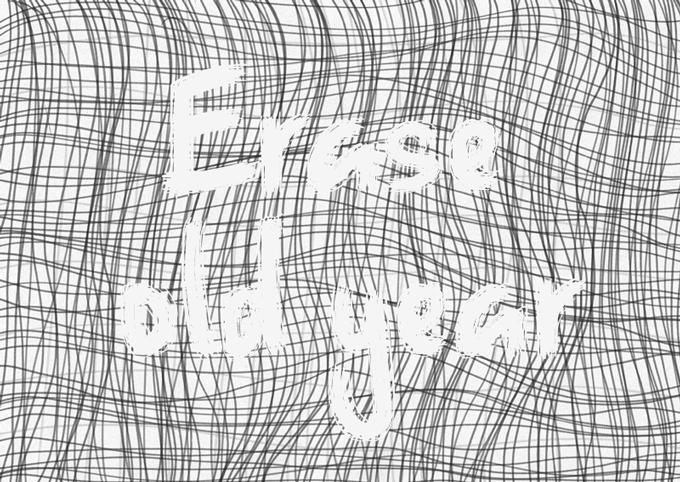 Erase
old year